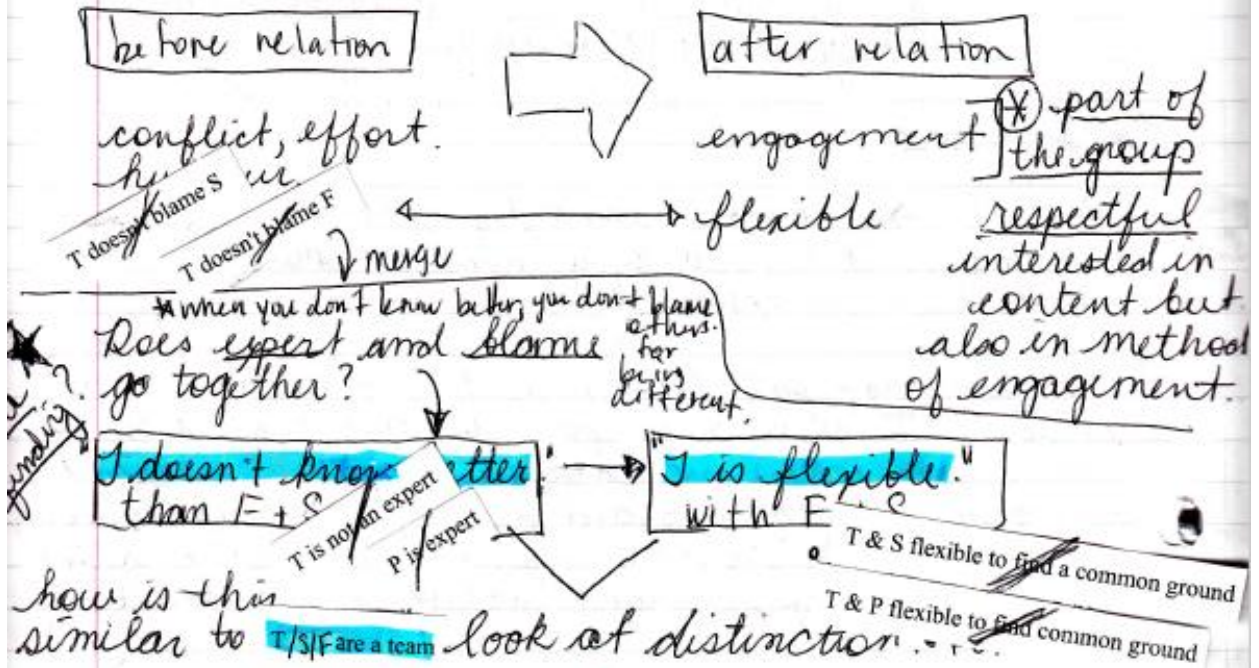 before relation
after relation
conflict, effort.
engagement
* part of
the group
T doesn't blame S
T doesn't blame F
flexible
respectful
interested in
content but
also in method
of engagement.
merge
*when you don't know better, you don't blame
others.
for
being
different.
Does expert and blame
go together?
"T doesn't know better."
than F + S
"T is flexible."
with F + S
T is not an expert
P is expert
T & S flexible to find a common ground
T & P flexible to find common ground
how is this
similar to T/S/F are a team look at distinction...